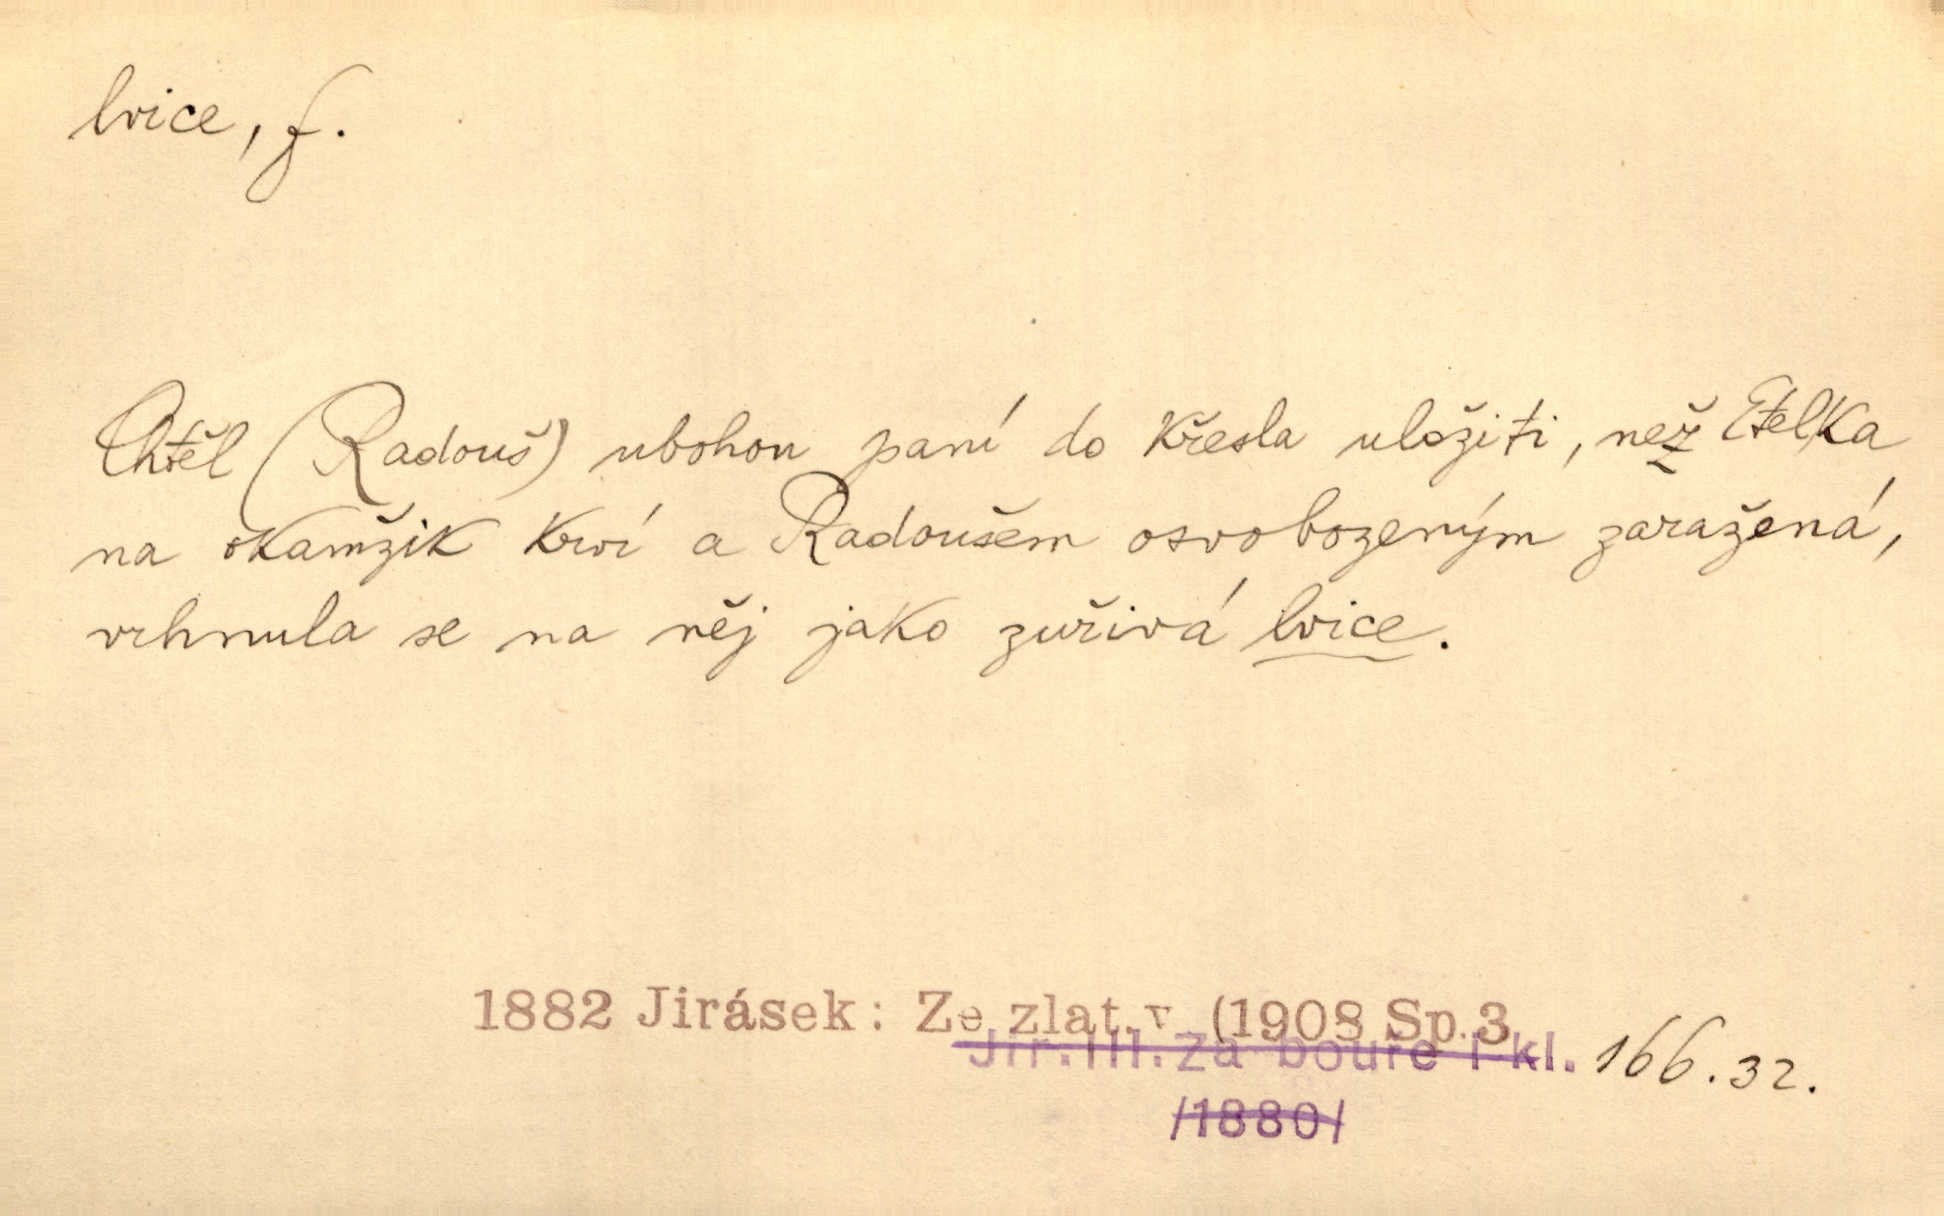 lvice, f.
Chtěl (Radouš) ubohou paní do křesla uložiti, než Etelka
na okamžik krví a Radoušem osvobozeným zaražená,
vrhnula se na něj jako zuřivá lvice.
1882 Jirásek: Ze zlat. v (1908 Sp.3
Jir.III.Za bouře i kl. 166.32.
/1880/